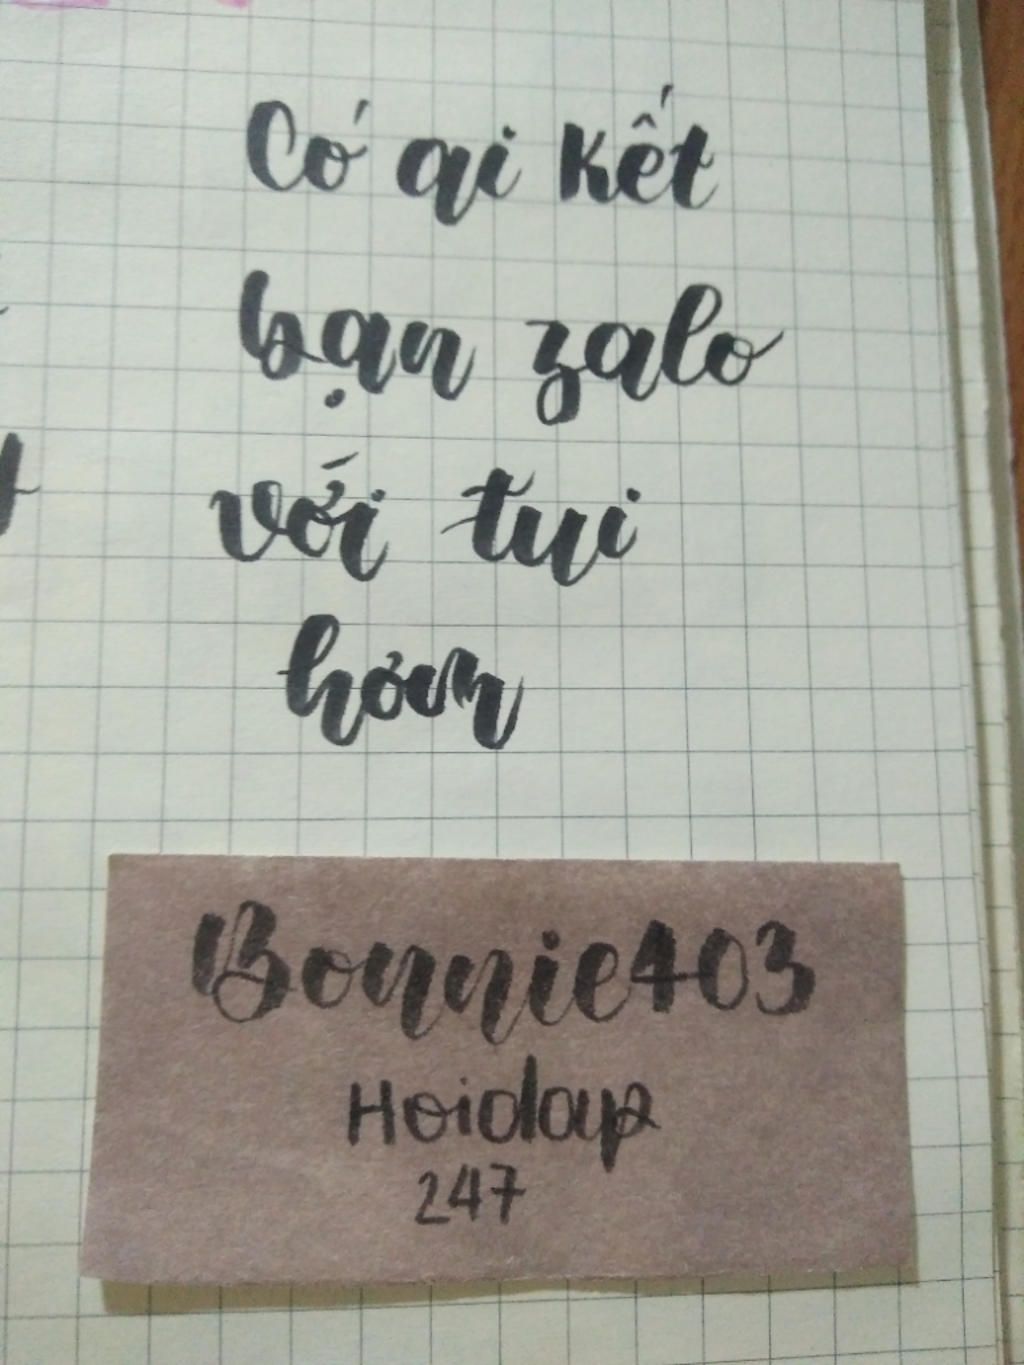 Có ai kết
bạn zalo
với tui
hơm
Bonnie403
Hoidap
247